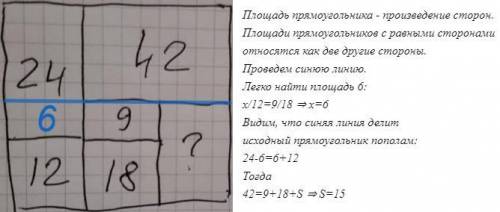 24
42
6
9
12
18
?
Площадь прямоугольника - произведение сторон.
Площади прямоугольников с равными сторонами
относятся как две другие стороны.
Проведем синюю линию.
Легко найти площадь 6:
x/12=9/18 ⇒ x=6
Видим, что синяя линия делит
исходный прямоугольник пополам:
24-6=6+12
Тогда
42=9+18+S ⇒ S=15